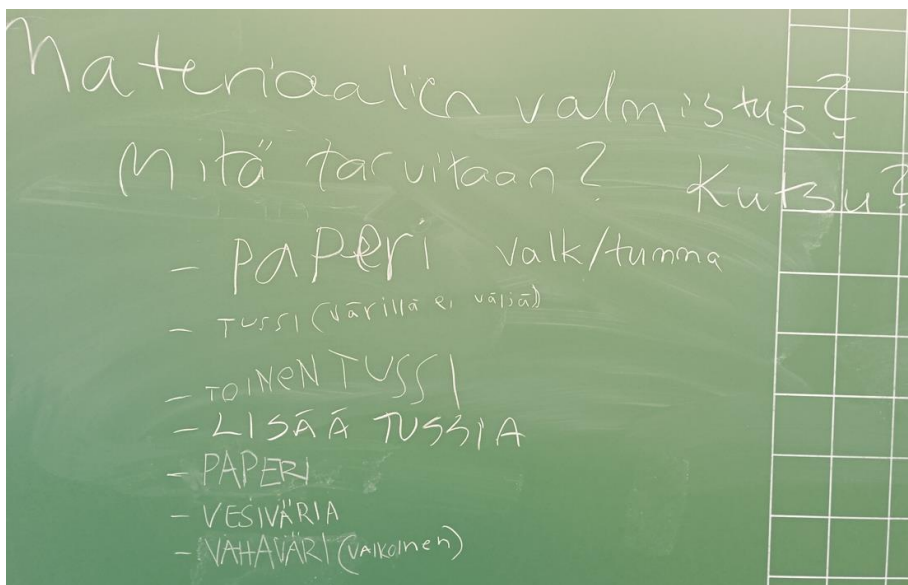 Materiaalien valmistus?
Mitä tarvitaan? Kutsu?
- PAPeri valk/tumma
- TUSSI (värillä ei väliä)
- TOINEN TUSSI
- LISÄÄ TUSSIA
- PAPERI
- VESIVÄRIÄ
- VAHAVÄRI (VAlKOinen)